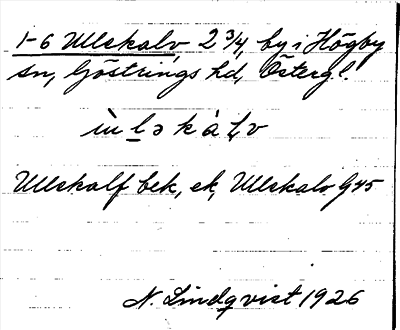 1-6 Ullekalv, 2 3/4, by i Högby
sn, Göstrings hd, Östergl.
ùl̠ǝkàl̥v
Ullekalf bek, ek, Ullekalv G45
N. Lindqvist 1926